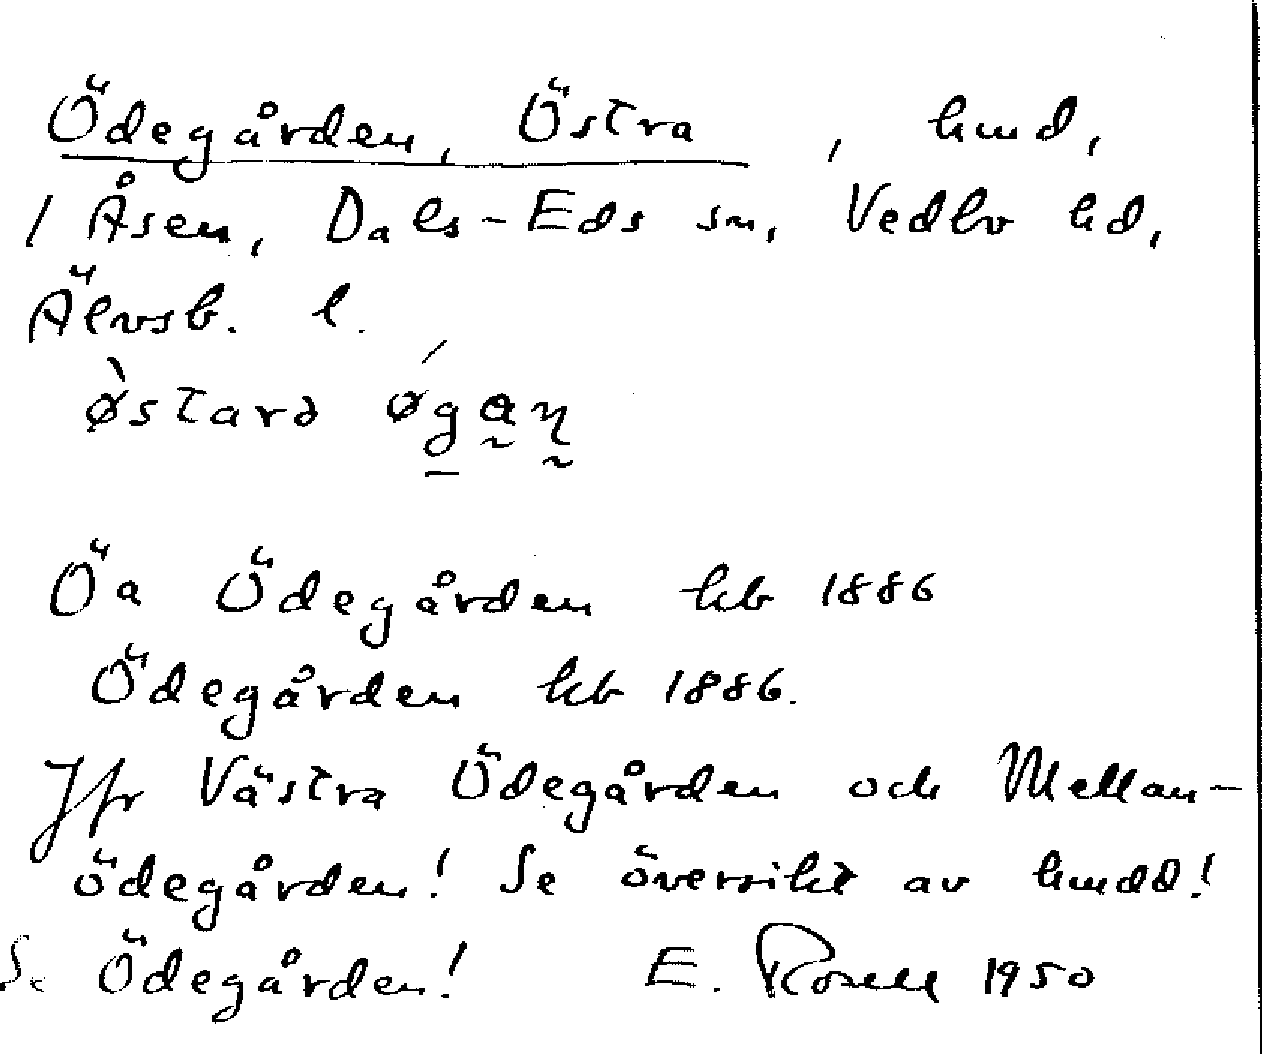 Ödegården, Östra, hmd,
/ Åsen, Dals-Eds sn, Vedbo hd,
Älvsb. l.
Öa Ödegården kb 1886
Ödegården kb 1886.
Jfr Västra Ödegården och Mellan-
ödegården! Se översikt av hmdd!
Se Ödegården! E. Rosell 1950